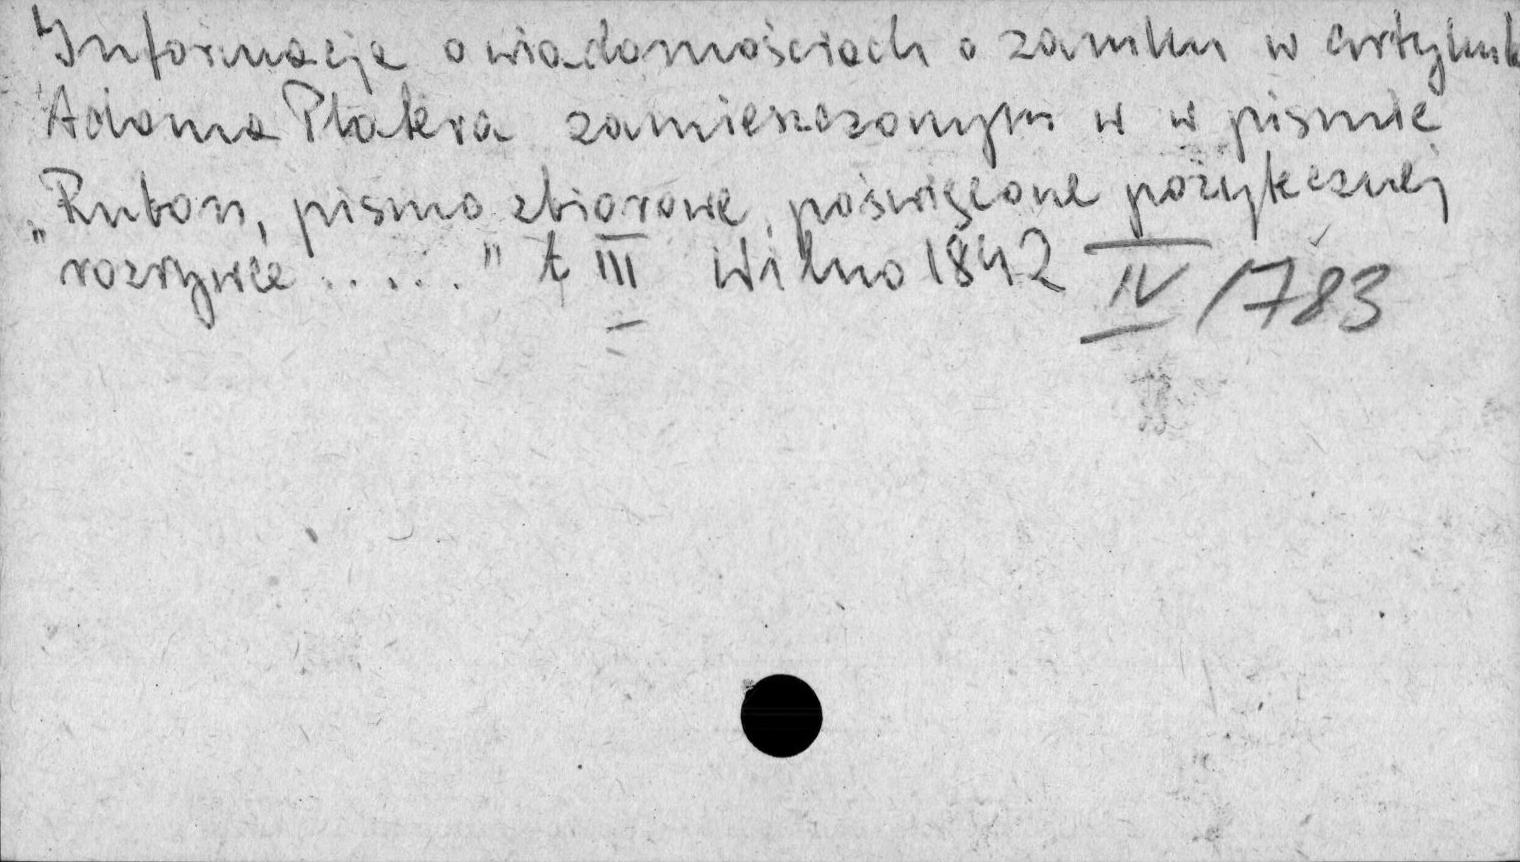 Informacje o wiadomościach o zamku w artykule
Adama Platera zamieszczonym w w pismie
„Rubon, pismo zbiorowe, poświęcone pożytecznej
rozrywce ....." t III Wilno 1842 IV/1783